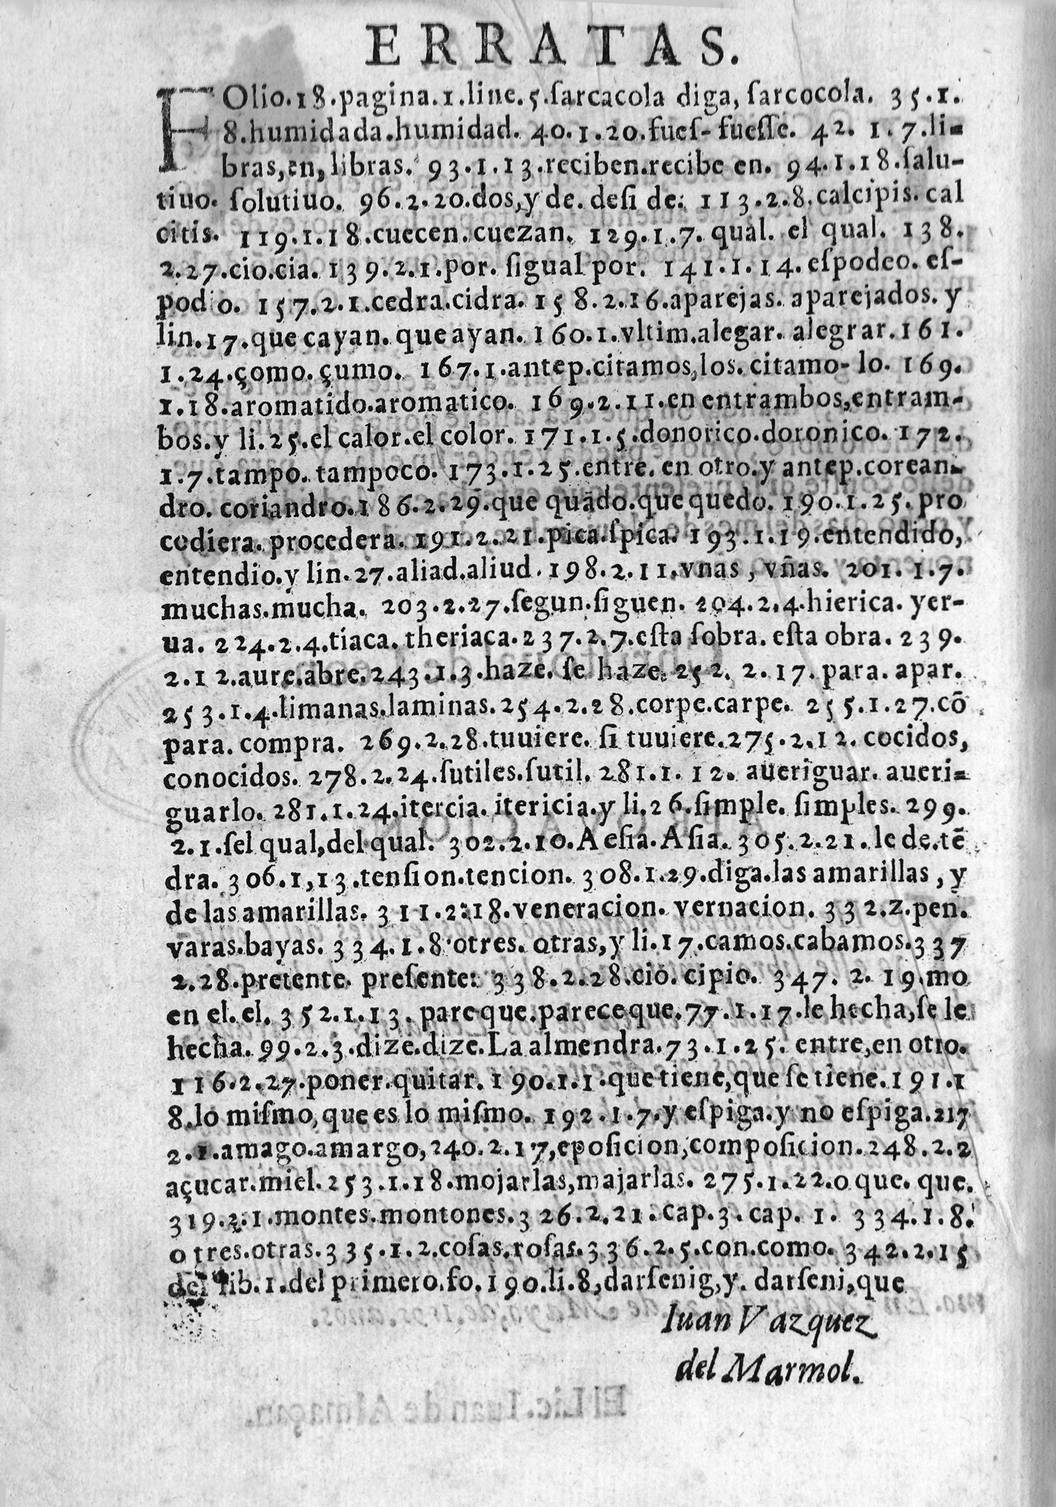 ERRATAS.
FOlio.18.pagina.1.line.5.sarcacola diga, sarcocola. 35.1.
8.humidada.humidad. 40.1.20.fues- fuesse. 42. 1.7.li-
bras,en,libras. 93.1.13.reciben.recibe en. 94.1.18.salu-
tiuo. solutiuo. 96.2.20.dos,y de. desi de. 113.2.8.calcipis. cal
citis. 119.1.18.cuecen.cuezan. 129.1.7. qual. el qual. 138.
2.27.cio.cia. 139.2.1.por. sigual por. 141.1.14. espodeo. es-
podio. 157.2.1.cedra.cidra. 158.2.16.aparejas. aparejados. y
lin.17.que cayan. que ayan. 160.1.vltim.alegar. alegrar.161.
1.24.çomo. çumo. 167.1.antep.citamos,los. citamo- lo. 169.
1.18.aromatido.aromatico. 169.2.11.en entrambos,entram-
bos.y li.25.el calor.el color. 171.1.5.donorico.doronico. 172.
1.7.tampo. tampoco. 173.1.25.entre. en otro.y antep.corean-
dro. coriandro.186.2.29.que quãdo.que quedo. 190.1.25. pro
cediera. procedera. 191.2.21.pica.spica. 193.1.19.entendido,
entendio.y lin.27.aliad.aliud.198.2.11.vnas, vñas. 201.1.7.
muchas.mucha. 203.2.27.segun.siguen. 204.2.4.hierica. yer-
ua. 224.2.4.tiaca. theriaca.237.2.7.esta sobra. esta obra. 239.
2.12.aure.abre.243.1.3.haze. se haze. 252. 2.17. para. apar.
253.1.4.limanas.laminas.254.2.28.corpe.carpe. 255.1.27.cõ
para. compra. 269.2.28.tuuiere. si tuuiere.275.2.12. cocidos,
conocidos. 278.2.24.sutiles.sutil. 281.1.12. aueriguar. aueri-
guarlo. 281.1.24.itercia. itericia.y li.26.simple. simples. 299.
2.1.sel qual,del qual. 302.2.10.Aesia.Asia. 305.2.21.le de.tẽ
dra. 306.1,13.tension.tencion. 308.1.29.diga.las amarillas, y
de las amarillas. 311.2.18.veneracion. vernacion. 332.2.pen.
varas.bayas. 334.1.8.otres. otras,y li.17.camos.cabamos.337
2.28.pretente. presente. 338.2.28.cio. cipio. 347. 2. 19.mo
en el. el. 352.1.13. pareque.pareceque.77.1.17.le hecha,se le
hecha.99.2.3.dize.dize.La almendra.73.1.25. entre,en otro.
116.2.27.poner.quitar.190.1.1.que tiene,que se tiene.191.1
8.lo mismo,que es lo mismo. 192.1.7.y espiga.y no espiga.217
2.1.amago.amargo,240.2.17,eposicion,composicion.248.2.2
açucar.miel.253.1.18.mojarlas,majarlas. 275.1.22.o que. que.
319.2.1.montes.montones.326.2.21.cap.3.cap. 1. 334.1.8.
otres.otras.335.1.2.cosas.rosas.336.2.5.con.como. 342.2.15
del lib.1.del primero.fo.190.li.8,darsenig,y. darseni,que
Iuan Vazquez
del Marmol.